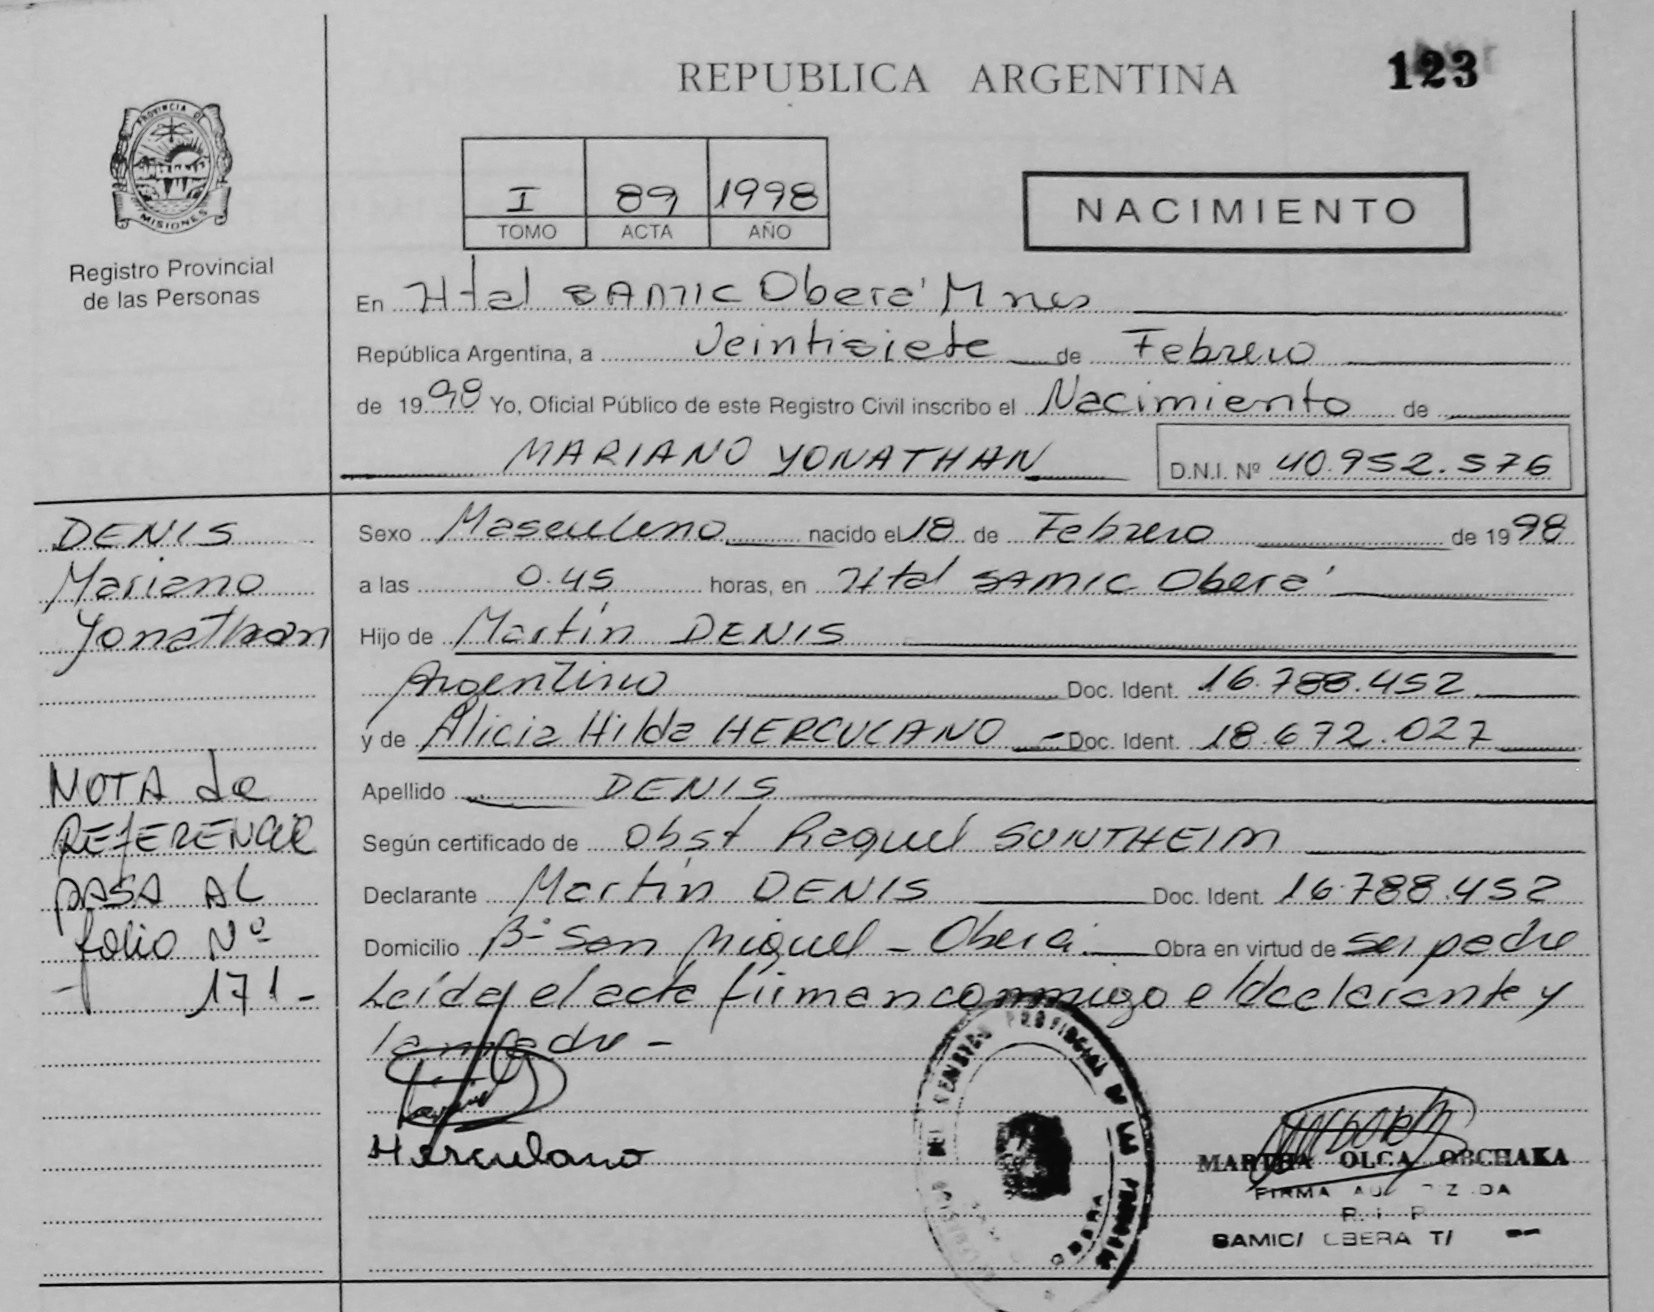 REPUBLICA ARGENTINA
123
PROVINCIA DE
MISIONES
Registro Provincial
de las Personas
I 89 1998
TOMO ACTA AÑO
NACIMIENTO
En Htal SAMIC Oberá Mnes
República Argentina, a Veintisiete de Febrero
de 1998 Yo, Oficial Público de este Registro Civil inscribo el Nacimiento de
MARIANO YONATHAN D.N.I. Nº 40.952.576
DENIS
Mariano
Yonathan
NOTA de
REFERENCIA
PASA AL
folio Nº
171-
Sexo Masculino nacido el 18 de Febrero de 1998
a las 0.45 horas, en Htal SAMIC Oberá
Hijo de Martín DENIS
Argentino Doc. Ident. 16.788.452
y de Alicia Hilda HERCULANO - Doc. Ident. 18.672.027
Apellido DENIS
Según certificado de Obst Raquel SUNTHEIM
Declarante Martín DENIS Doc. Ident. 16.788.452
Domicilio Bº San Miguel - Oberá Obra en virtud de ser padre
Leída el acta firman conmigo el declarante y
la madre -
Herculano
PROVINCIAL DE LAS
MARTHA OLGA OBCHAKA
FIRMA
SAMIC/ OBERA